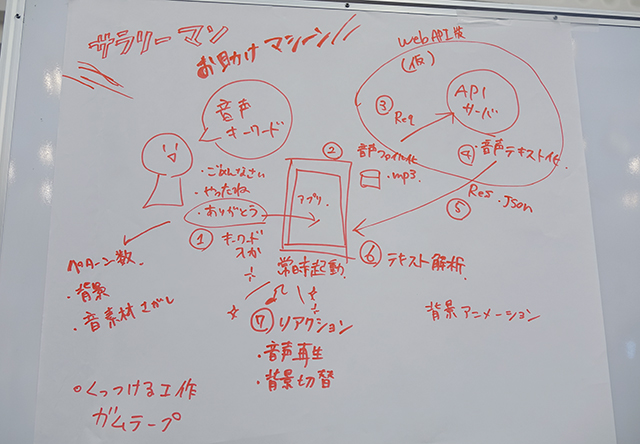 サラリーマン
お助けマシーン!!
Web API版
(仮)
API
サーバ
③
Req
音声ファイル化
.mp3
④
・音声テキスト化
⑤
Res.Json
音声
キーワード
・ごめんなさい
・やったね
・ありがとう
①
キーワード
入力
②
アプリ
常時起動
⑥
テキスト解析
⑦
リアクション
・音声再生
・背景切替
パターン数
・背景
・音素材さがし
背景アニメーション
○くっつける工作
ガムテープ